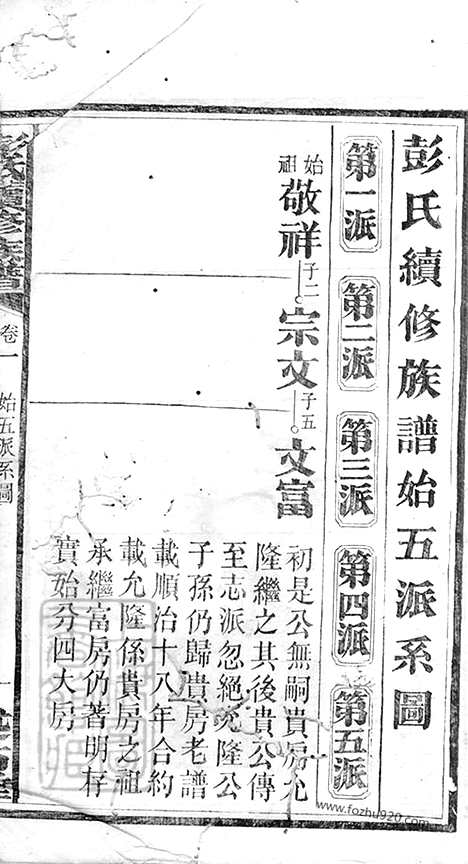 彭氏續修族譜始五派系圖
第一派
第二派
第三派
第四派
第五派
始祖
敬祥
子二
宗文
子五
文富
初是公無嗣貴房允
隆繼之其後貴公傳
至志派忽絕允隆公
子孫仍歸貴房老譜
載順治十八年合約
載允隆係貴房之祖
承繼富房仍著明存
實始分四大房
彭氏續修族譜
卷一
始五派系圖
www.fozhu920.com